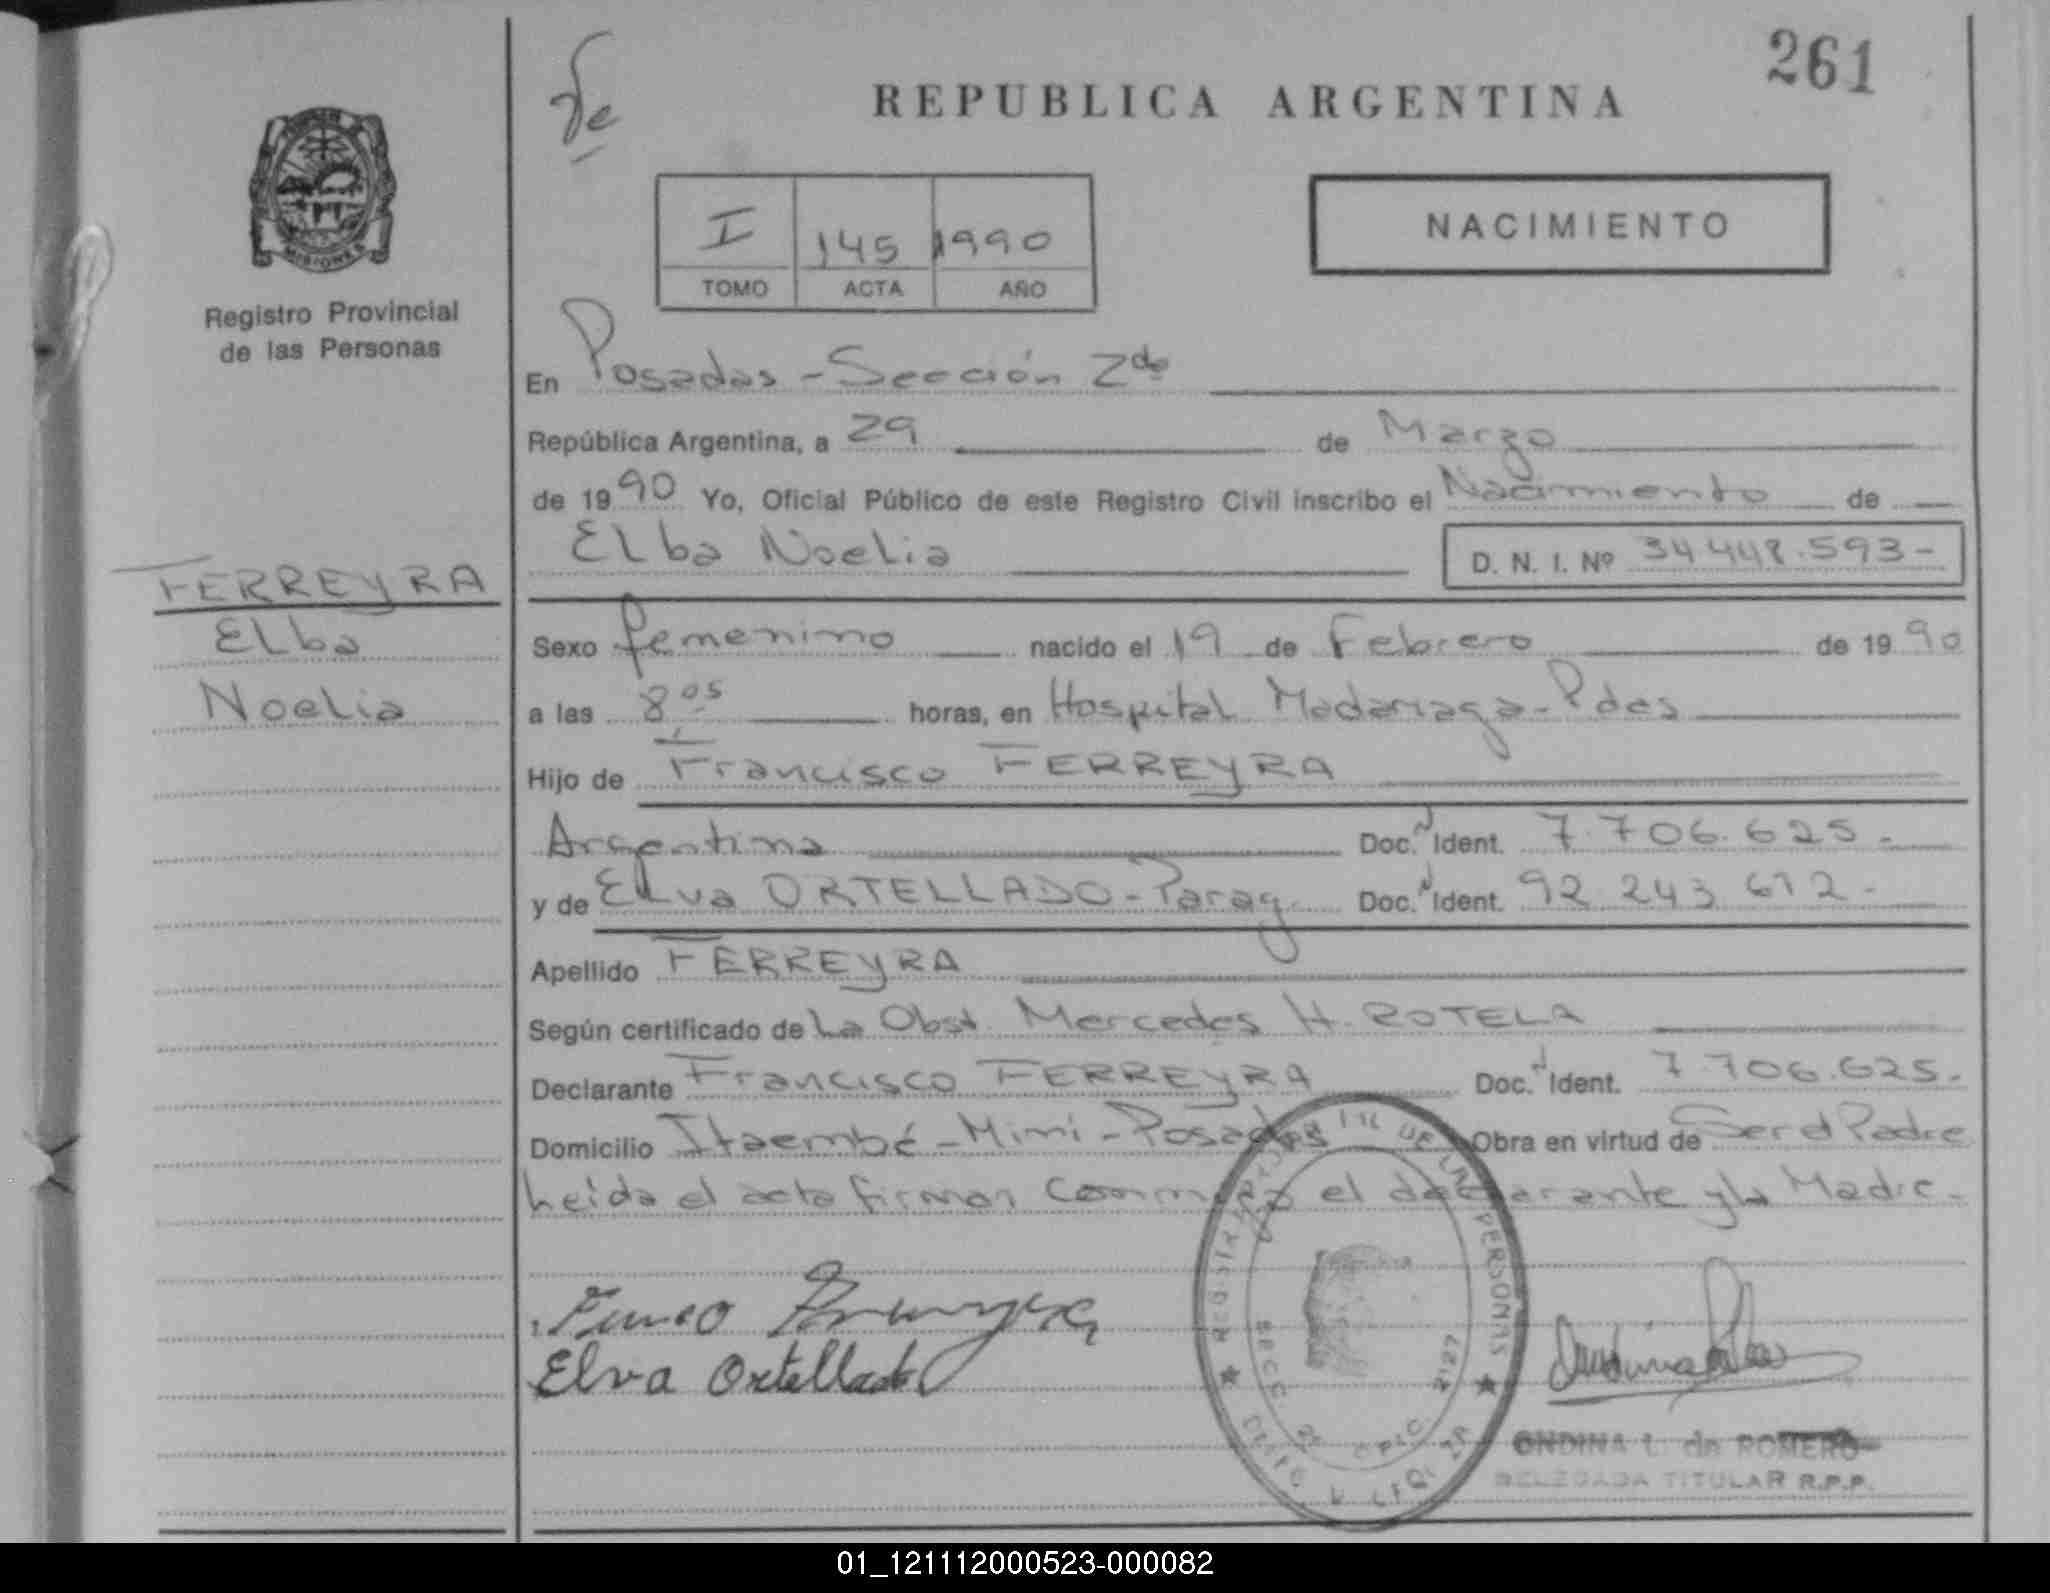 261
REPUBLICA ARGENTINA
MISIONES
Registro Provincial
de las Personas
I 145 1990
TOMO ACTA AÑO
NACIMIENTO
En Posadas - Sección 2da
República Argentina, a 29 de Marzo
de 1990 Yo, Oficial Público de este Registro Civil inscribo el Nacimiento de
Elba Noelia D. N. I. Nº 34.448.593-
FERREYRA
Elba
Noelia
Sexo femenino nacido el 19 de Febrero de 1990
a las 8 05 horas, en Hospital Madariaga - Pdas
Hijo de Francisco FERREYRA
Argentina Doc. Ident. 7.706.625.-
y de Elva ORTELLADO - Parag. Doc. Ident. 92.243.612.-
Apellido FERREYRA
Según certificado de La Obst. Mercedes H. ROTELA
Declarante Francisco FERREYRA Doc. Ident. 7.706.625.-
Domicilio Itaembé - Miní - Posadas Obra en virtud de Ser el Padre
Leída el acta firman conmigo el declarante y la Madre.-
Elva Ortellado
PERSONAS
ONDINA L. de ROMERO
DELEGADA TITULAR R.P.P.
01_121112000523-000082